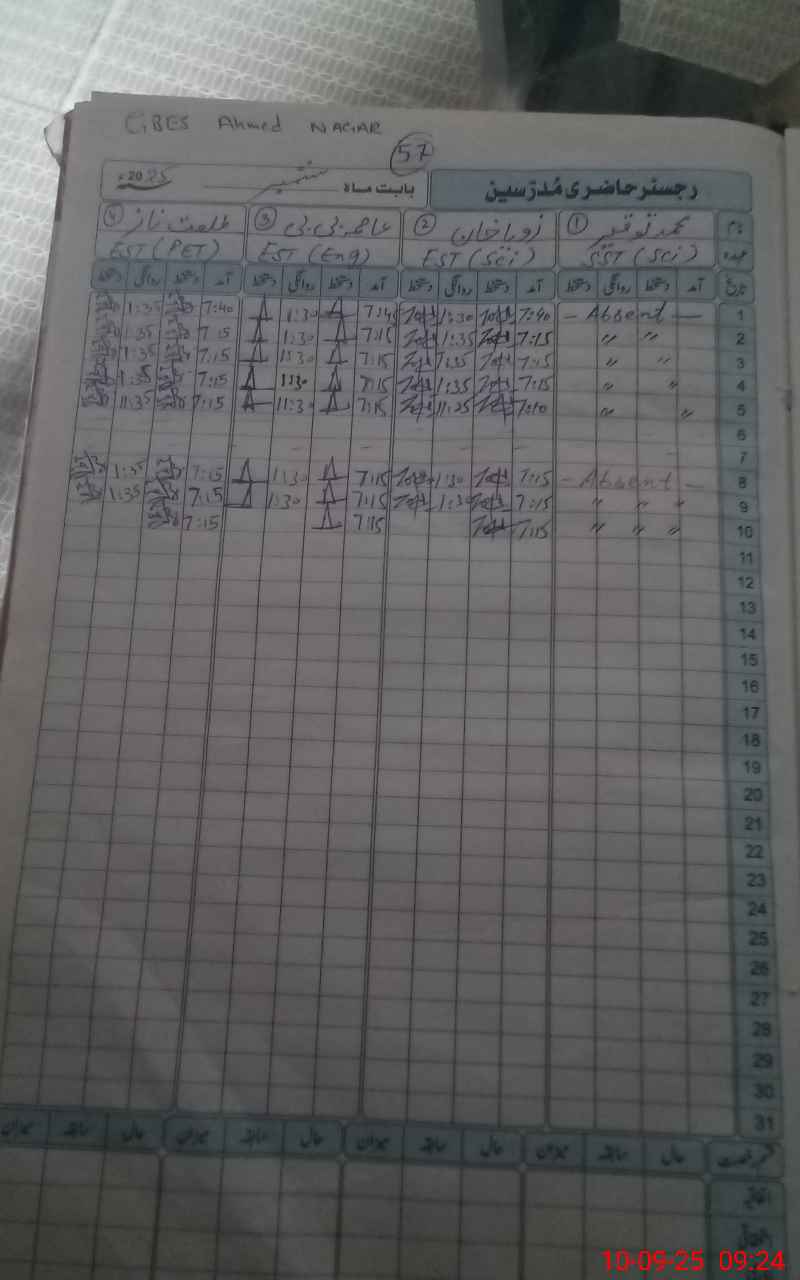 GBES Ahmed NAGAR
57
رجسٹر حاضری مُدرّسین
بابت ماہ ستمبر 2025ء
نام ① محمد توقیر ② زوبا خان ③ عاصمہ بی بی ④ طلعت ناز
عہدہ SST (Sci) EST (Sci) EST (Eng) EST (PET)
تاریخ آمد دستخط روانگی دستخط آمد دستخط روانگی دستخط آمد دستخط روانگی دستخط آمد دستخط روانگی دستخط
1 - Absent - 7:40 1:30 7:45 1:30 7:40 1:35
2 " " 7:15 1:35 7:15 1:30 7:15 1:35
3 " " 7:15 1:35 7:15 1:30 7:15 1:35
4 " " 7:15 1:35 7:15 1:30 7:15 1:35
5 " " 7:10 11:25 7:15 11:30 7:15 11:35
6
7
8 - Absent - 7:15 1:30 7:15 1:30 7:15 1:35
9 " " " 7:15 1:30 7:15 1:30 7:15 1:35
10 " " " 7:15 7:15 7:15
11
12
13
14
15
16
17
18
19
20
21
22
23
24
25
26
27
28
29
30
31
حال سابقہ میزان حال سابقہ میزان حال سابقہ میزان حال سابقہ میزان
اتفاقیہ
10-09-25 09:24